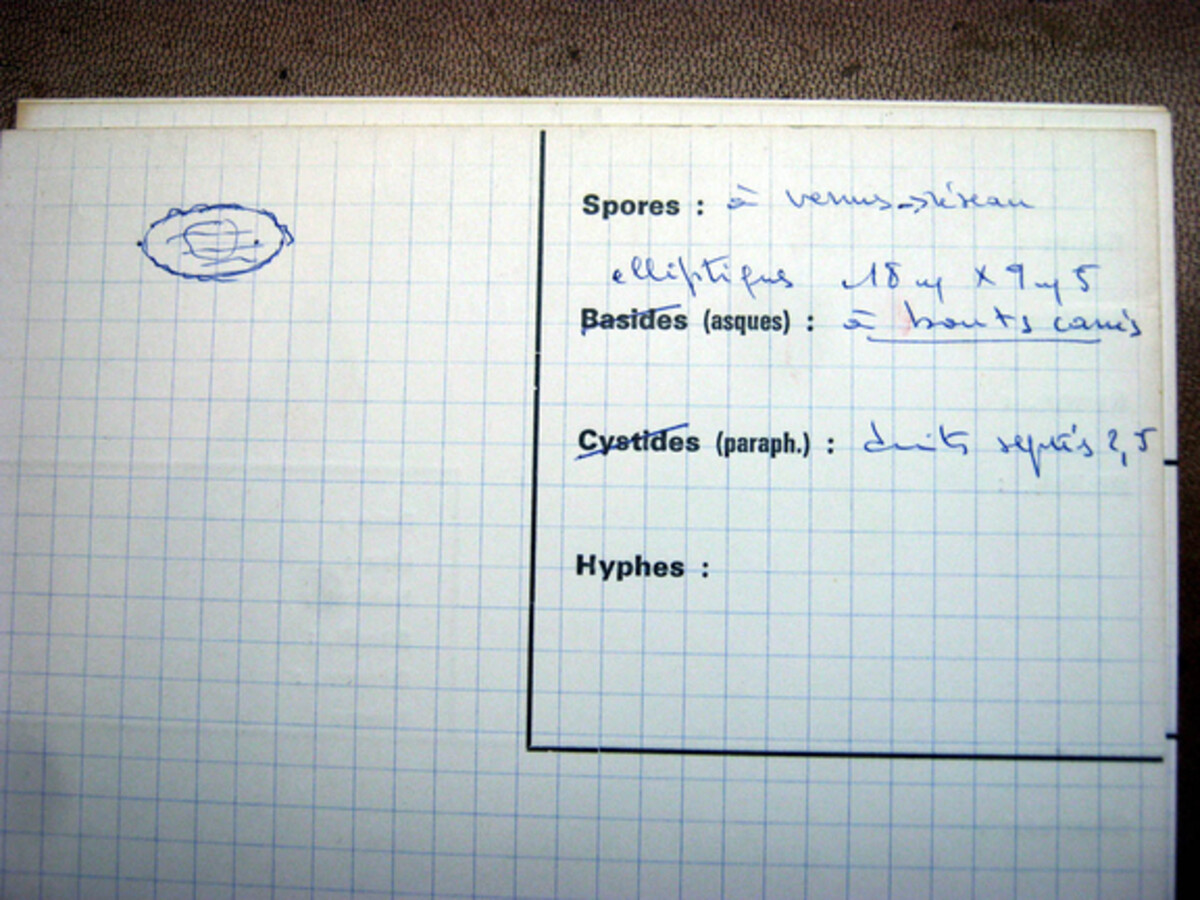 Spores : à verrues → réseau
elliptiques 18 µ X 9 µ 5
Basides (asques) : à bouts carrés
Cystides (paraph.) : droits septés 2,5
Hyphes :